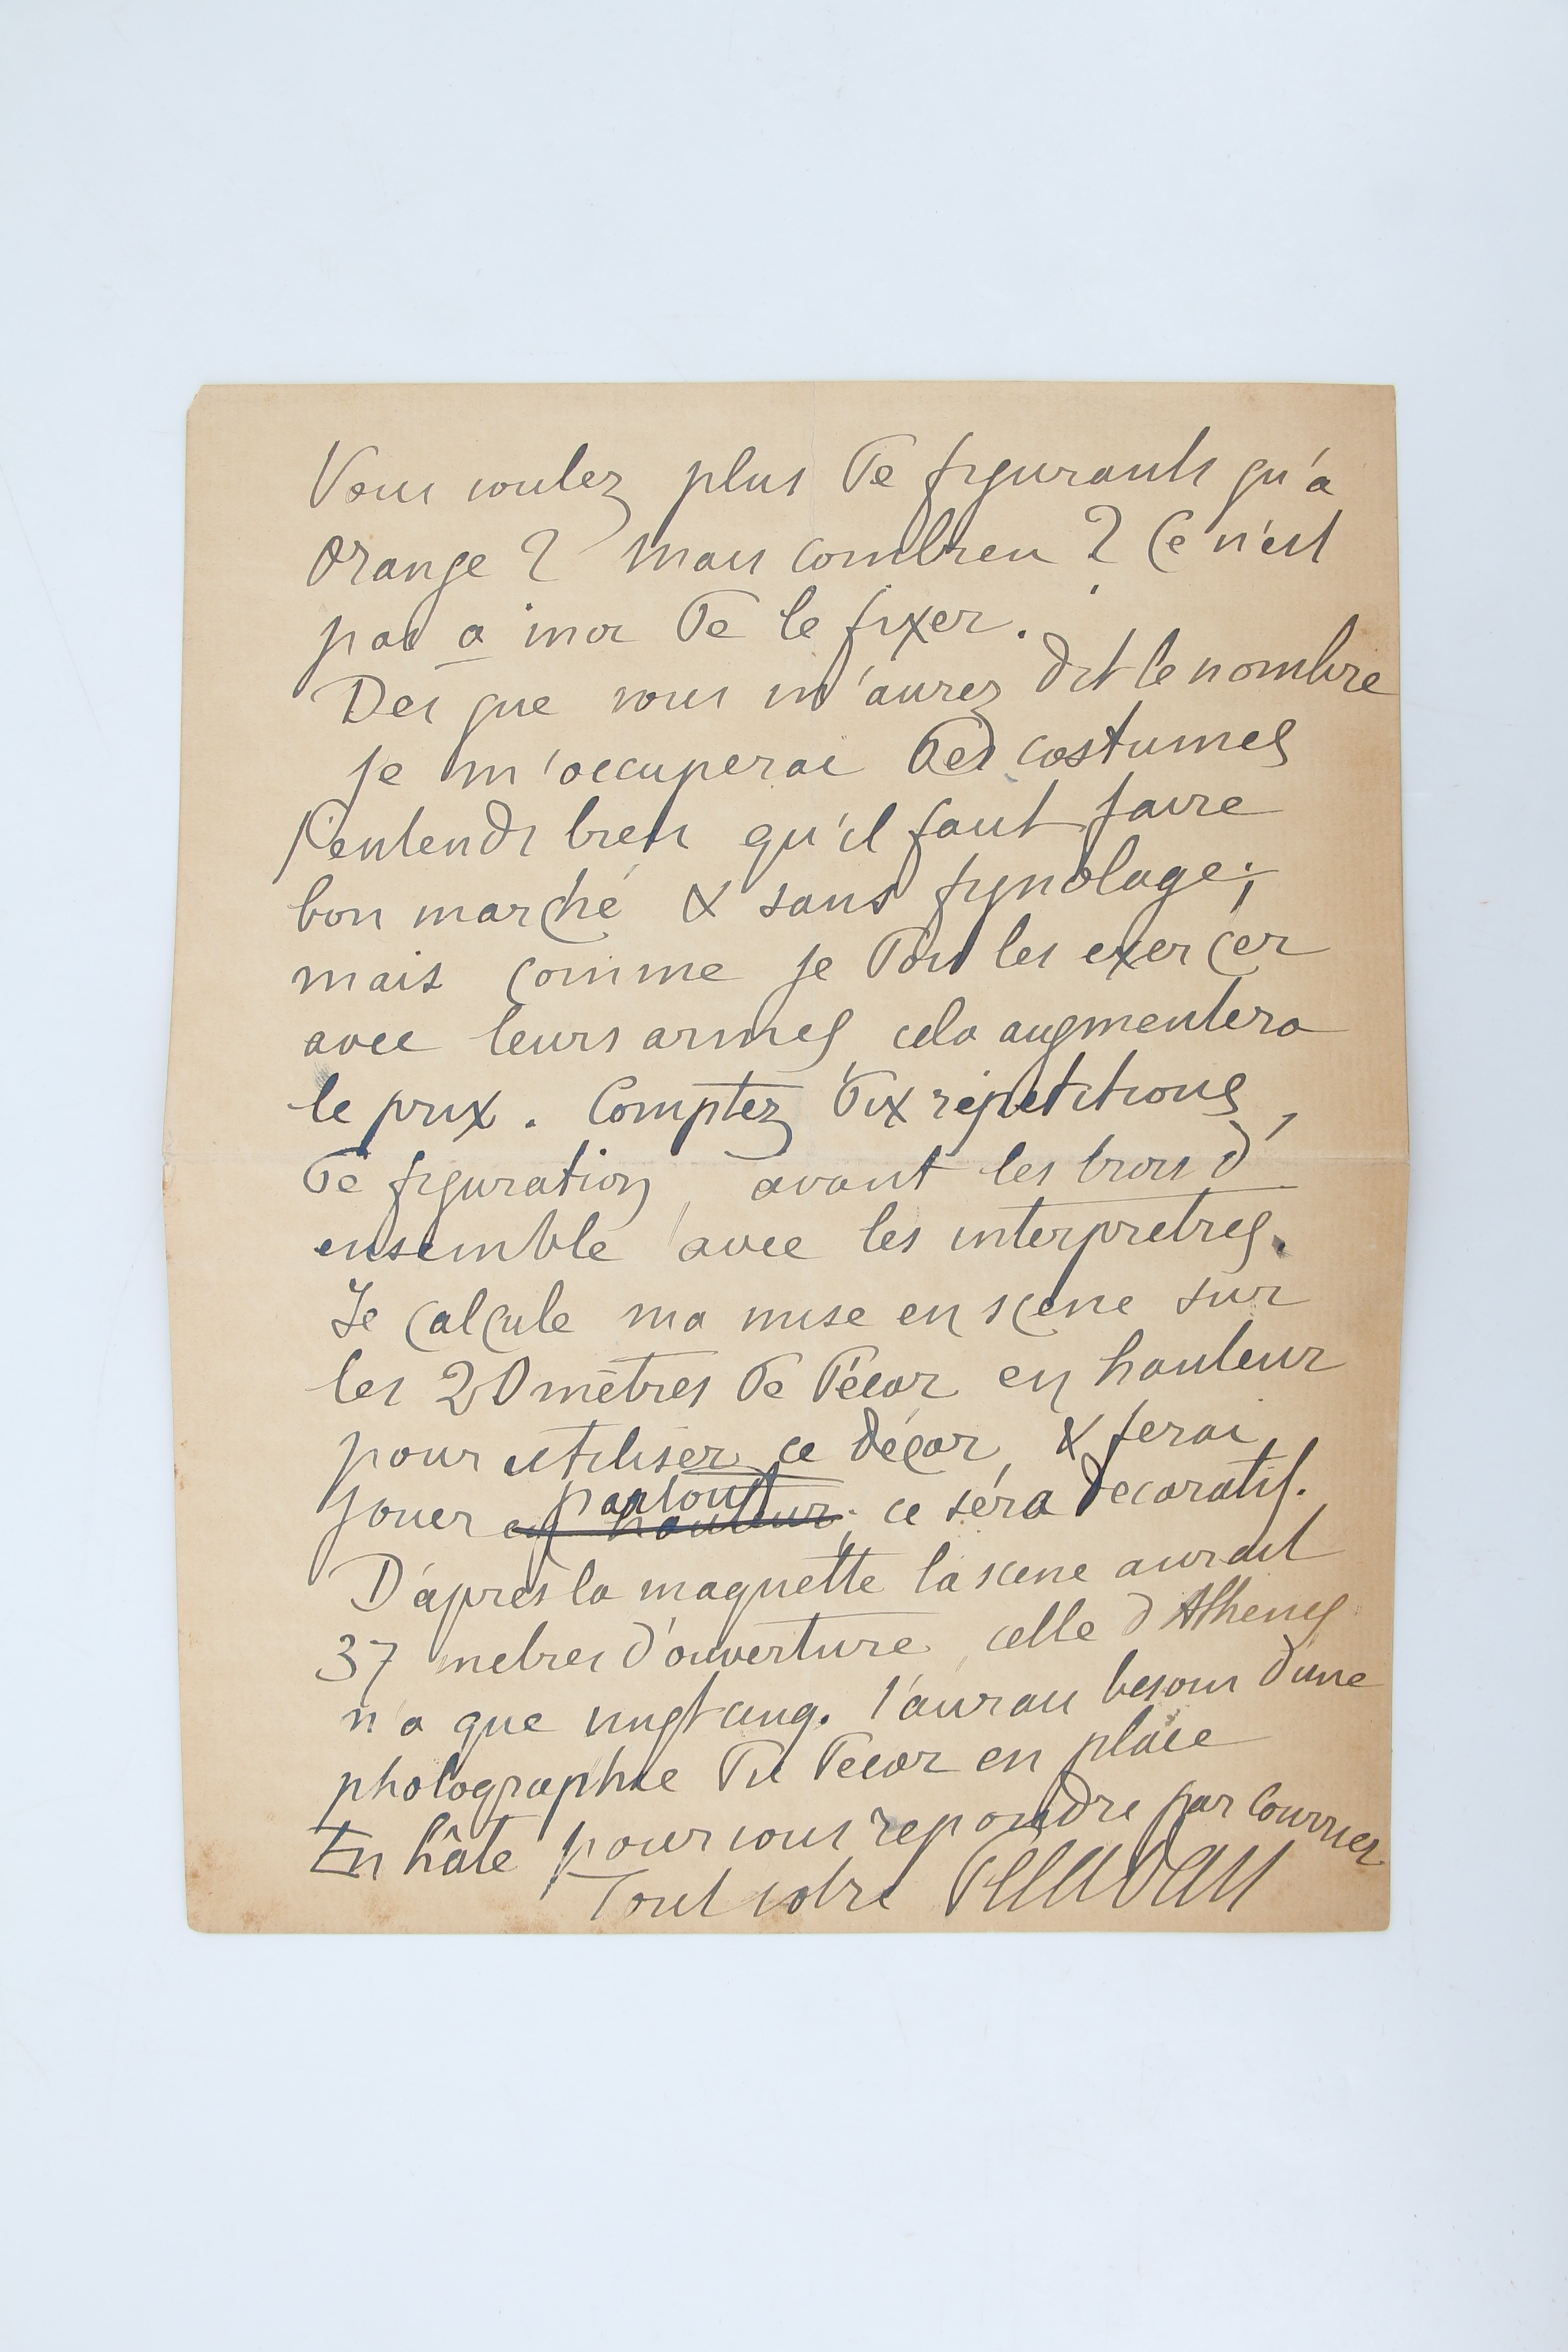 Vous voulez plus de figurants qu'à
Orange ? Mais combien ? Ce n'est
pas à moi de le fixer.
Des que vous m'aurez dit le nombre
je m'occuperai des costumes
J'entends bien qu'il faut faire
bon marché & sans fignolage ;
mais comme je dois les exercer
avec leurs armes, cela augmentera
le prix. Comptez dix répétitions
de figuration, avant les trois d'
ensemble avec les interpretres.
Je calcule ma mise en scene sur
les 20 mètres de décor en hauteur
pour utiliser ce décor, & ferai
jouer en hauteur partout ; ce séra decoratif.
D'après la maquette la scene aurait
37 metres d'ouverture, celle d'Athenes
n'a que vingt cinq. J'aurais besoin d'une
photographie du decor en place
En hâte pour vous repondre par courrier
Tout votre Péladan